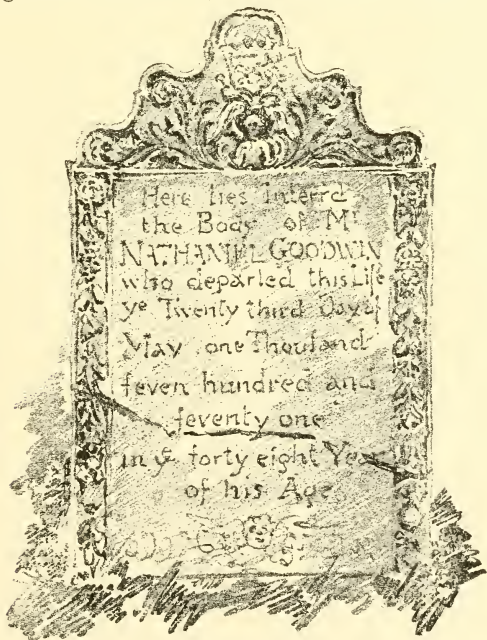 Here lies interrd
the Body of Mr
NATHANIEL GOODWIN
who departed this Life
ye Twenty third Day of
May one Thouſand
ſeven hundred and
ſeventy one
in ye forty eight Year
of his Age